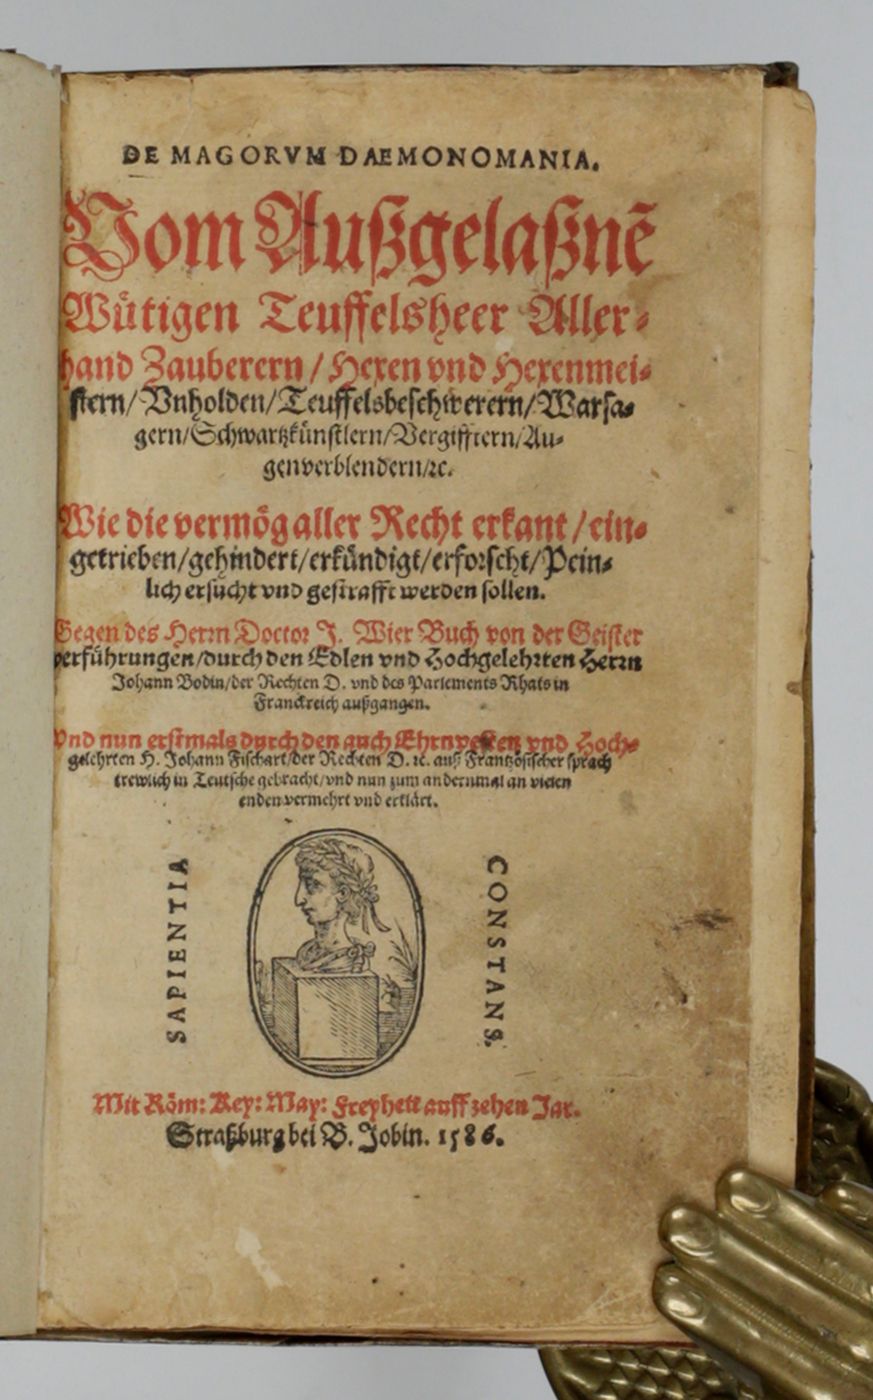 DE MAGORVM DAEMONOMANIA.
Vom Außgelaßnē
Wütigen Teuffelsheer Aller-
hand Zauberern / Hexen vnd Hexenmei-
stern/Vnholden/Teuffelsbeschwerern/Warsa-
gern/Schwartzkünstlern/Vergifftern/Au-
genverblendern/ꝛc.
Wie die vermög aller Recht erkant / ein-
getrieben/gehindert/erkündigt/erforscht/Pein-
lich ersucht vnd gestrafft werden sollen.
Gegen des Herrn Doctor J. Wier Buch von der Geister
verführungen/durch den Edlen vnd Hochgelehrten Herrn
Johann Bodin/der Rechten D. vnd des Parlements Rhats in
Franckreich außgangen.
Vnd nun erstmals durch den auch Ehrnvesten vnd Hoch-
gelehrten H. Johann Fischart/der Rechten D. ꝛc. auß Frantzösischer sprach
trewlich in Teutsche gebracht/vnd nun zum andernmal an vielen
enden vermehrt vnd erklärt.
SAPIENTIA
CONSTANS.
Mit Röm: Key: May: Freyheit auff zehen Jar.
Straßburg bei B. Jobin. 1586.